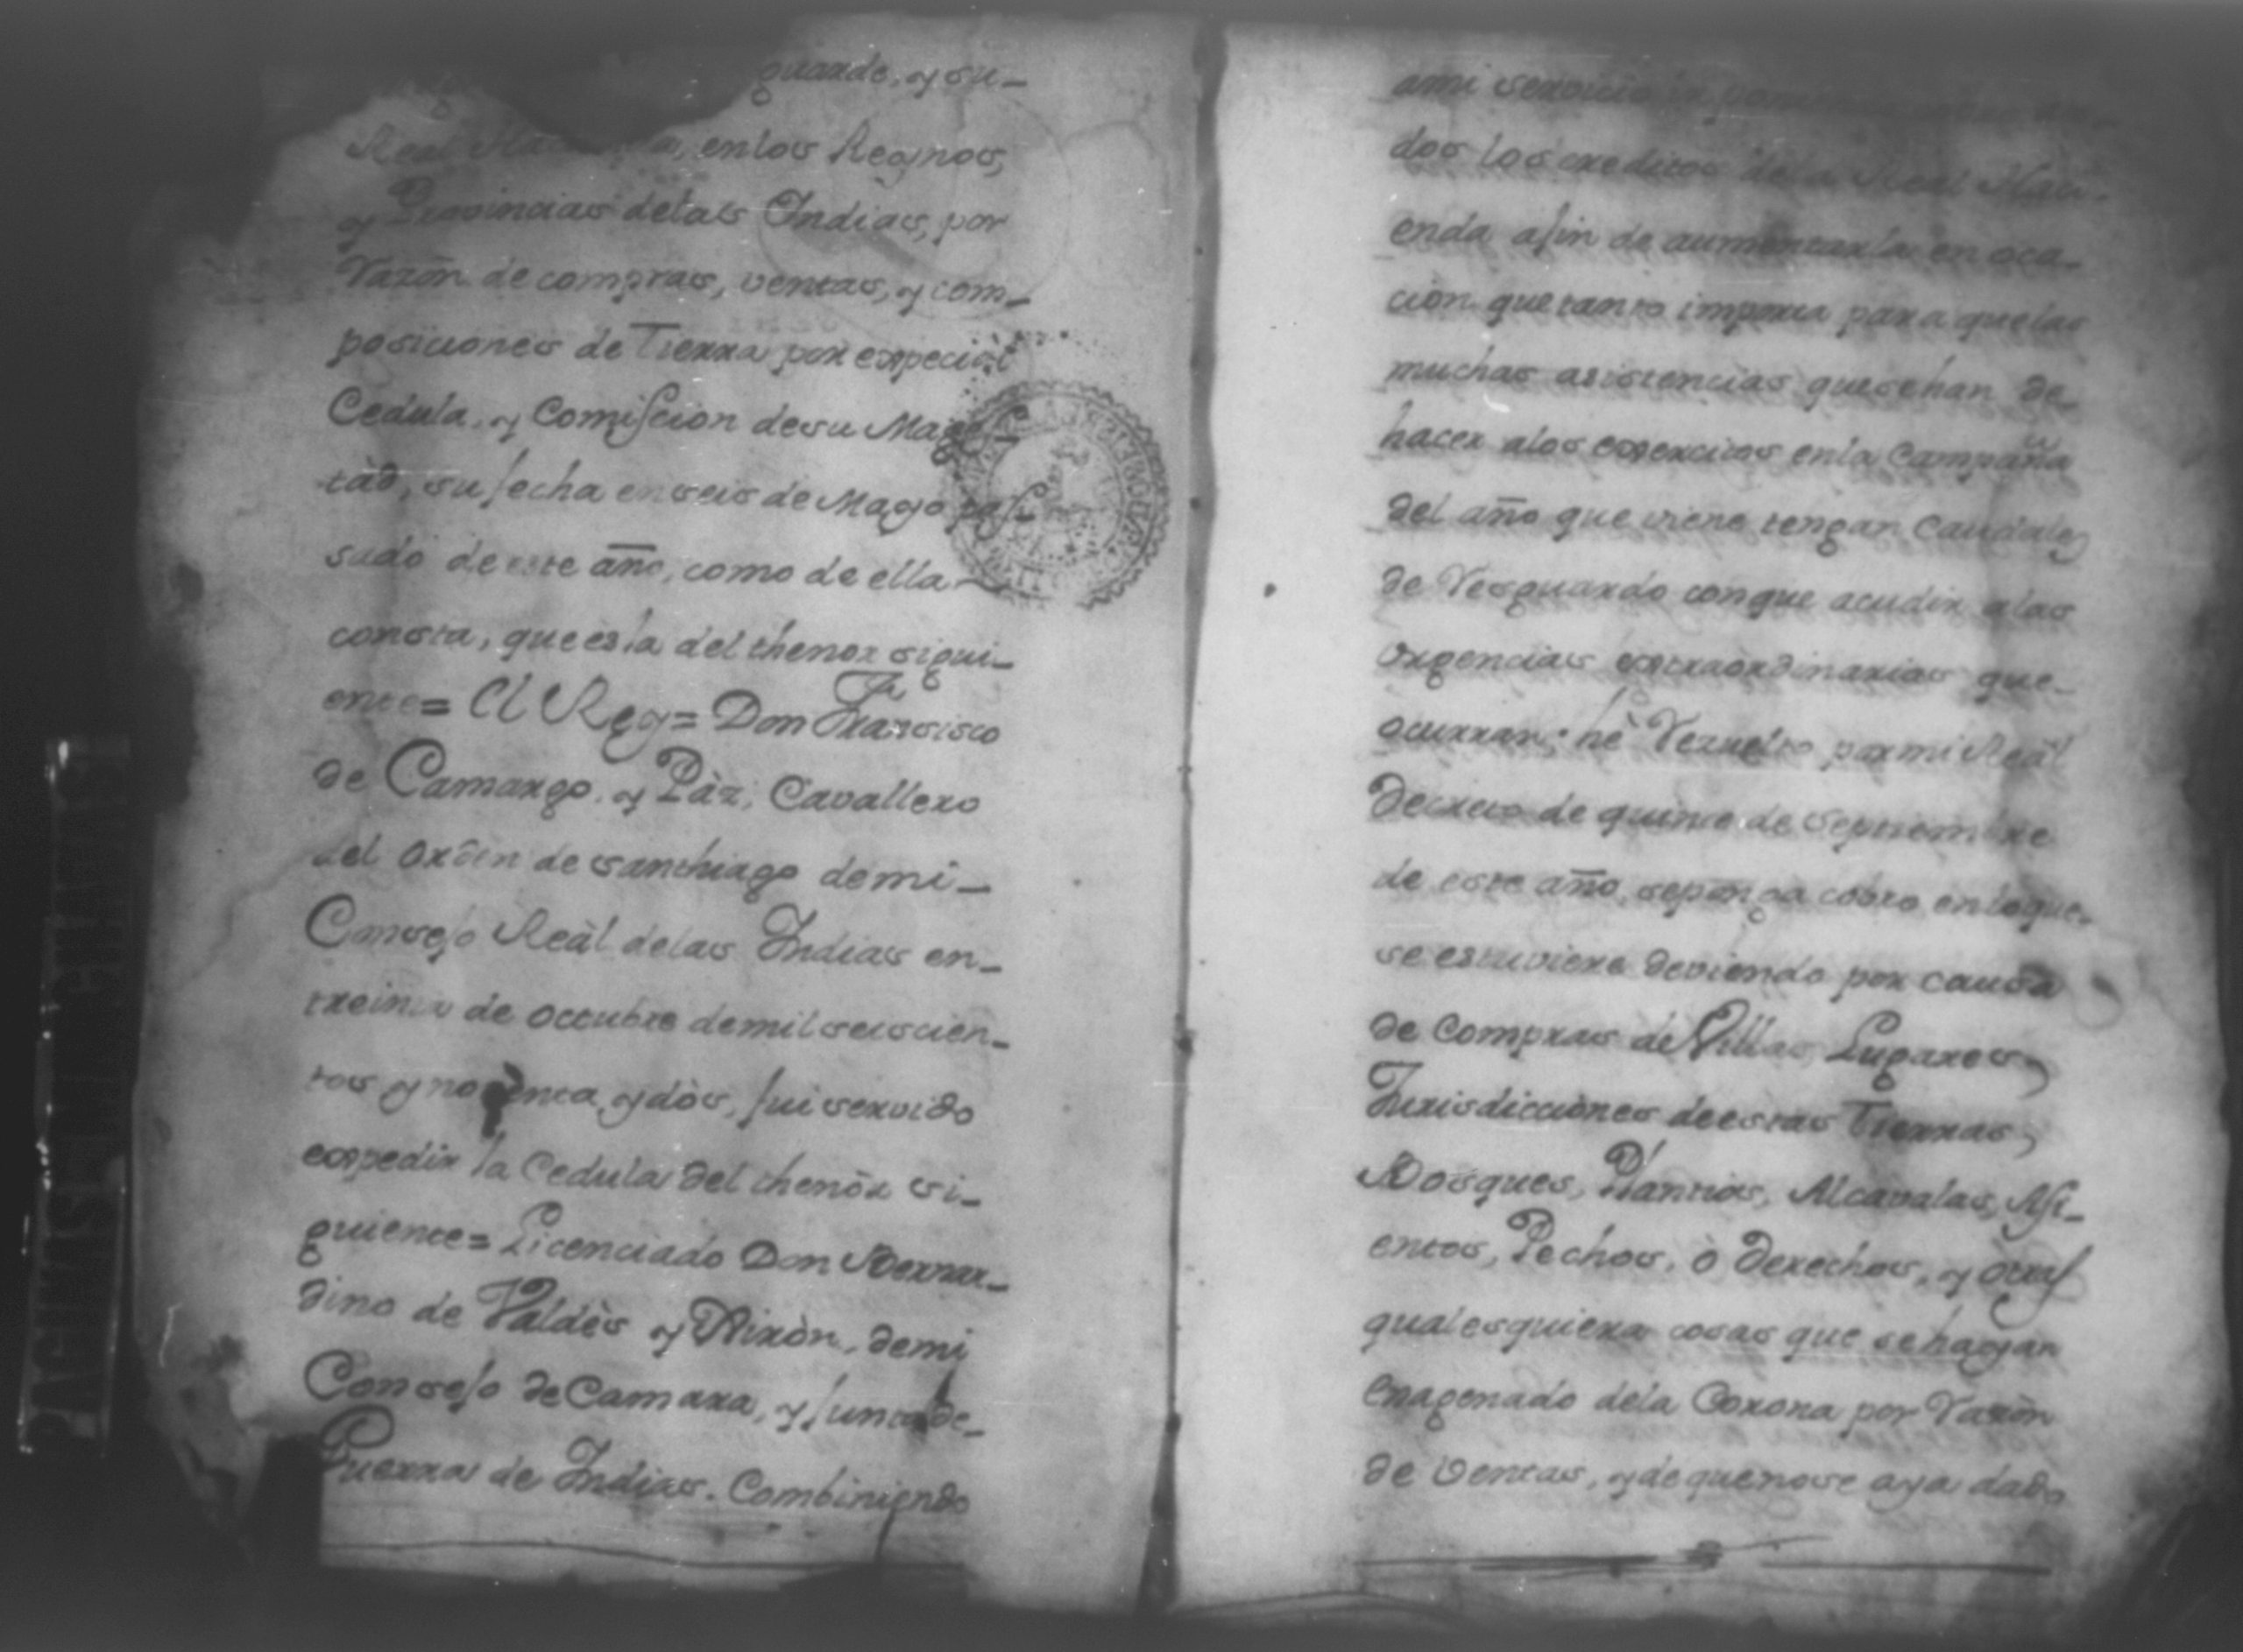 guarde, y su-
Real Hacienda, en los Reynos,
y Provincias delas Indias, por
razōn de compras, ventas, y com-
posiciones de Tierra por especiàl
Cedula, y Comiscion desu Mages-
tàd, su fecha en seis de Mayo pas-
sado de este año, como de ella
consta, que es la del thenor sigui-
ente= El Rey= Don Fransisco
de Camargo, y Pàz, Cavallero
del Orden de santhiago demi-
Consejo Reàl delas Indias en-
treinta de Octubre demil seiscien-
tos y noventa, y dòs, fui servido
expedir la Cedula del thenòr si-
guiente= Licenciado Don Bernar-
dino de Valdès y Xiròn, demi
Consejo de Camara, y Junta de-
Guerra de Indias. Combiniendo
ami servicio
dos los creditos dela Real Haci-
enda afin de aumentarla en oca-
cion que tanto importa para que las
muchas asistencias que se han de-
hacer alos exercitos enla Campaña
del año que viene tengan Caudales
de resguardo conque acudir alas
Urgencias extraordinarias que-
ocurran: hè rezuelto por mi Reàl
Decreto de quince de Septiembre
de este año, se ponga cobro en loque-
se estuviere deviendo por causa
de Compras de Villas, Lugares,
Jurisdicciònes de estas Tierras,
Bosques, Plantios, Alcavalas, Asi-
entos, Pechos, ò derechos, y otras
qualesquiera cosas que se hayan
Enagenado dela Corona por razōn
de Ventas, y de que no se aya dado